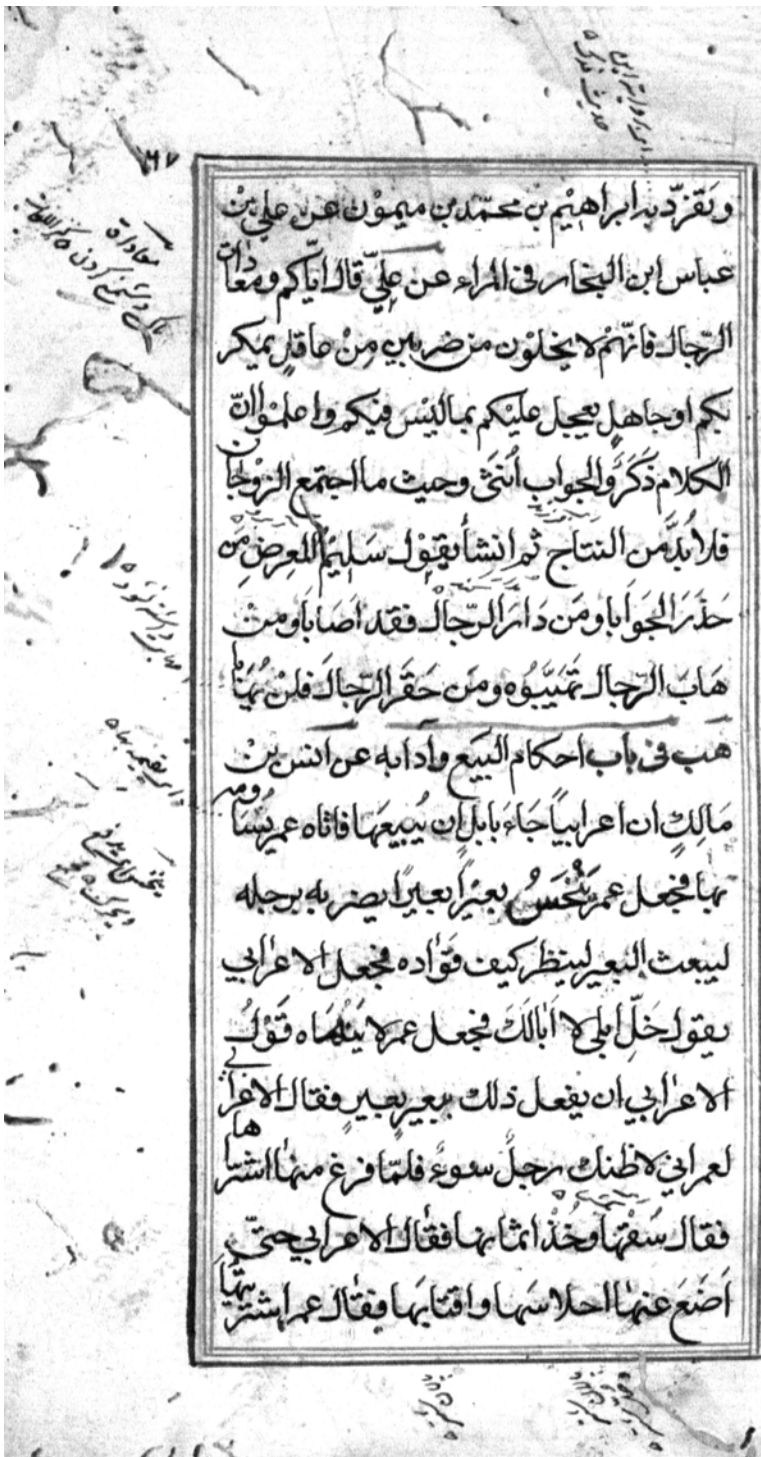 وتفرّد به ابراهيم بن محمّد بن ميمون عن علي بن
عباس ابن النجار فى المراء عن عليّ قال ايّاكم ومعادات
الرّجال فانّهم لا يخلون من ضربين من عاقل يمكر
بكم او جاهل يعجل عليكم بما ليس فيكم واعلموا انّ
الكلام ذَكَرٌ والجواب أنثى وحيث ما اجتمع الزوجان
فلا بُدَّ من النتاج ثم انشأ يقول سَلِيمُ العِرضِ مَن
حَذَرَ الجَوابا ومَن دارَ الرّجال فقد اصابا ومن
هابَ الرّجال تَهَيَّبُوه ومَن حَقَر الرّجالَ فلن يُهابا
هب فى باب احكام البيع وآدابه عن انس بن
مالِكٍ ان اعرابيًا جاءَ بابلٍ ان يُبيعَها فاتاه عمر يُساومه
بها فجعل عمر يَنْخَسُ بعيرًا بعيرًا يضربه برجله
ليبعث البعير لينظر كيف فَؤاده فجعل الاعرابي
يقول خَلِّ ابلي لا اَبالَكَ فجعل عمر لا يَنْهاه قَوْلُ
الاعرابي ان يفعل ذلك ببعيرٍ بعيرٍ فقال الاعرابي
لعمر انى لاظنك رجلُ سوءٍ فلمّا فرغ منها اشتراها
فقال سُقْها وخُذْ اثمانها فقال الاعرابي حتّى
اَضَعَ عنها احلاسَها واقتابَها فقال عمر اشتريتُها